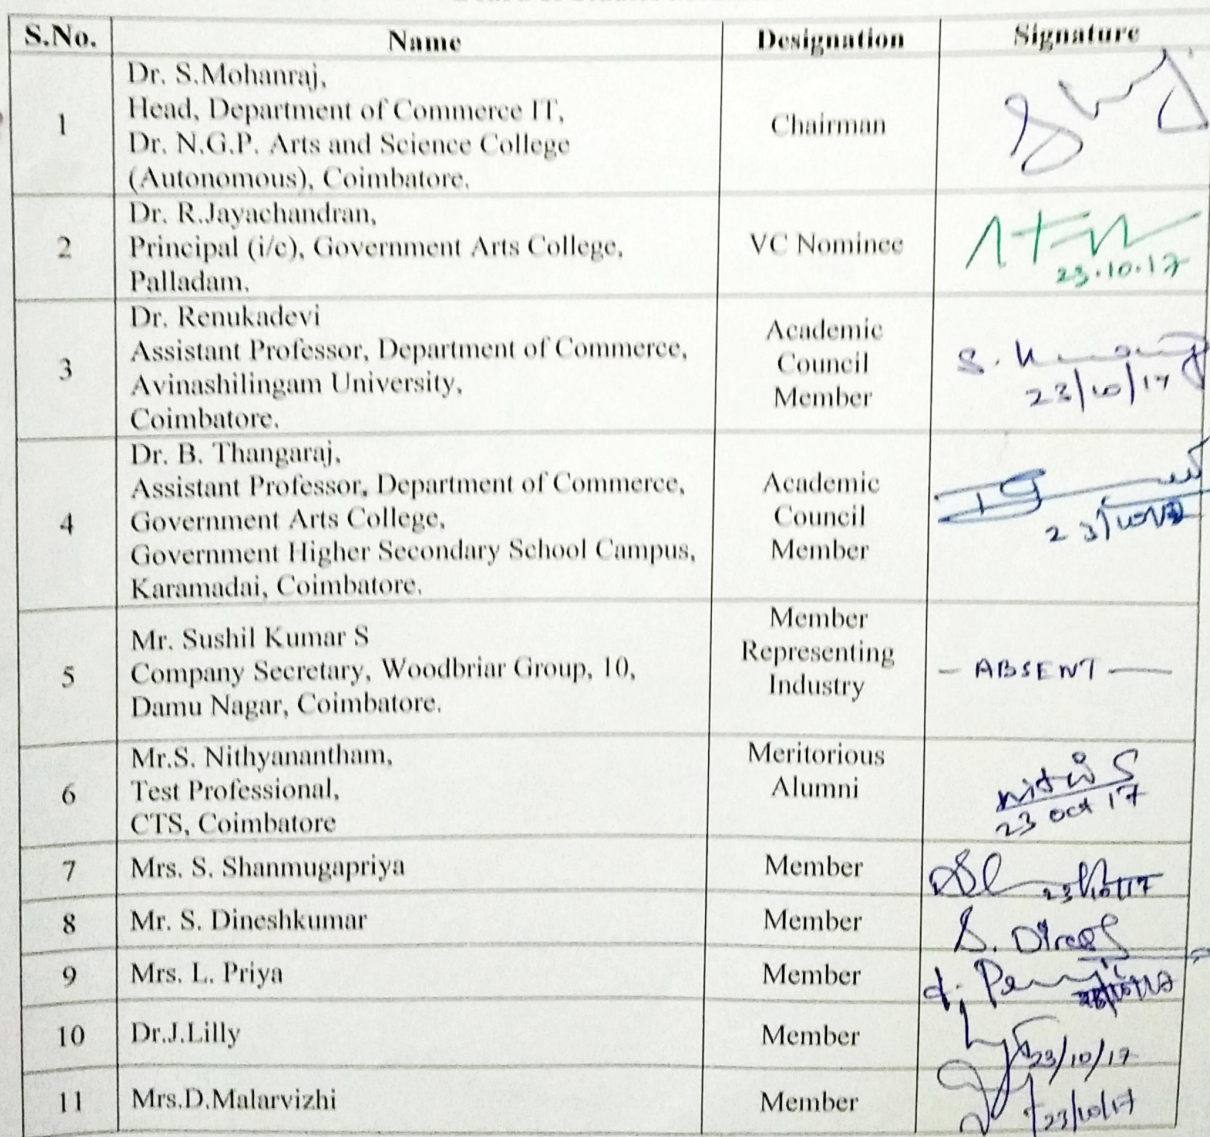 S.No. Name Designation Signature
1
Dr. S.Mohanraj,
Head, Department of Commerce IT,
Dr. N.G.P. Arts and Science College
(Autonomous), Coimbatore.
Chairman
2
Dr. R.Jayachandran,
Principal (i/c), Government Arts College,
Palladam.
VC Nominee
23.10.17
3
Dr. Renukadevi
Assistant Professor, Department of Commerce,
Avinashilingam University,
Coimbatore.
Academic
Council
Member
S.
23/10/17
4
Dr. B. Thangaraj,
Assistant Professor, Department of Commerce,
Government Arts College,
Government Higher Secondary School Campus,
Karamadai, Coimbatore.
Academic
Council
Member
23/10/17
5
Mr. Sushil Kumar S
Company Secretary, Woodbriar Group, 10,
Damu Nagar, Coimbatore.
Member
Representing
Industry
- ABSENT -
6
Mr.S. Nithyanantham,
Test Professional,
CTS, Coimbatore
Meritorious
Alumni
23 oct 17
7 Mrs. S. Shanmugapriya Member 23/10/17
8 Mr. S. Dineshkumar Member S.
9 Mrs. L. Priya Member
10 Dr.J.Lilly Member 23/10/17
11 Mrs.D.Malarvizhi Member 23/10/17